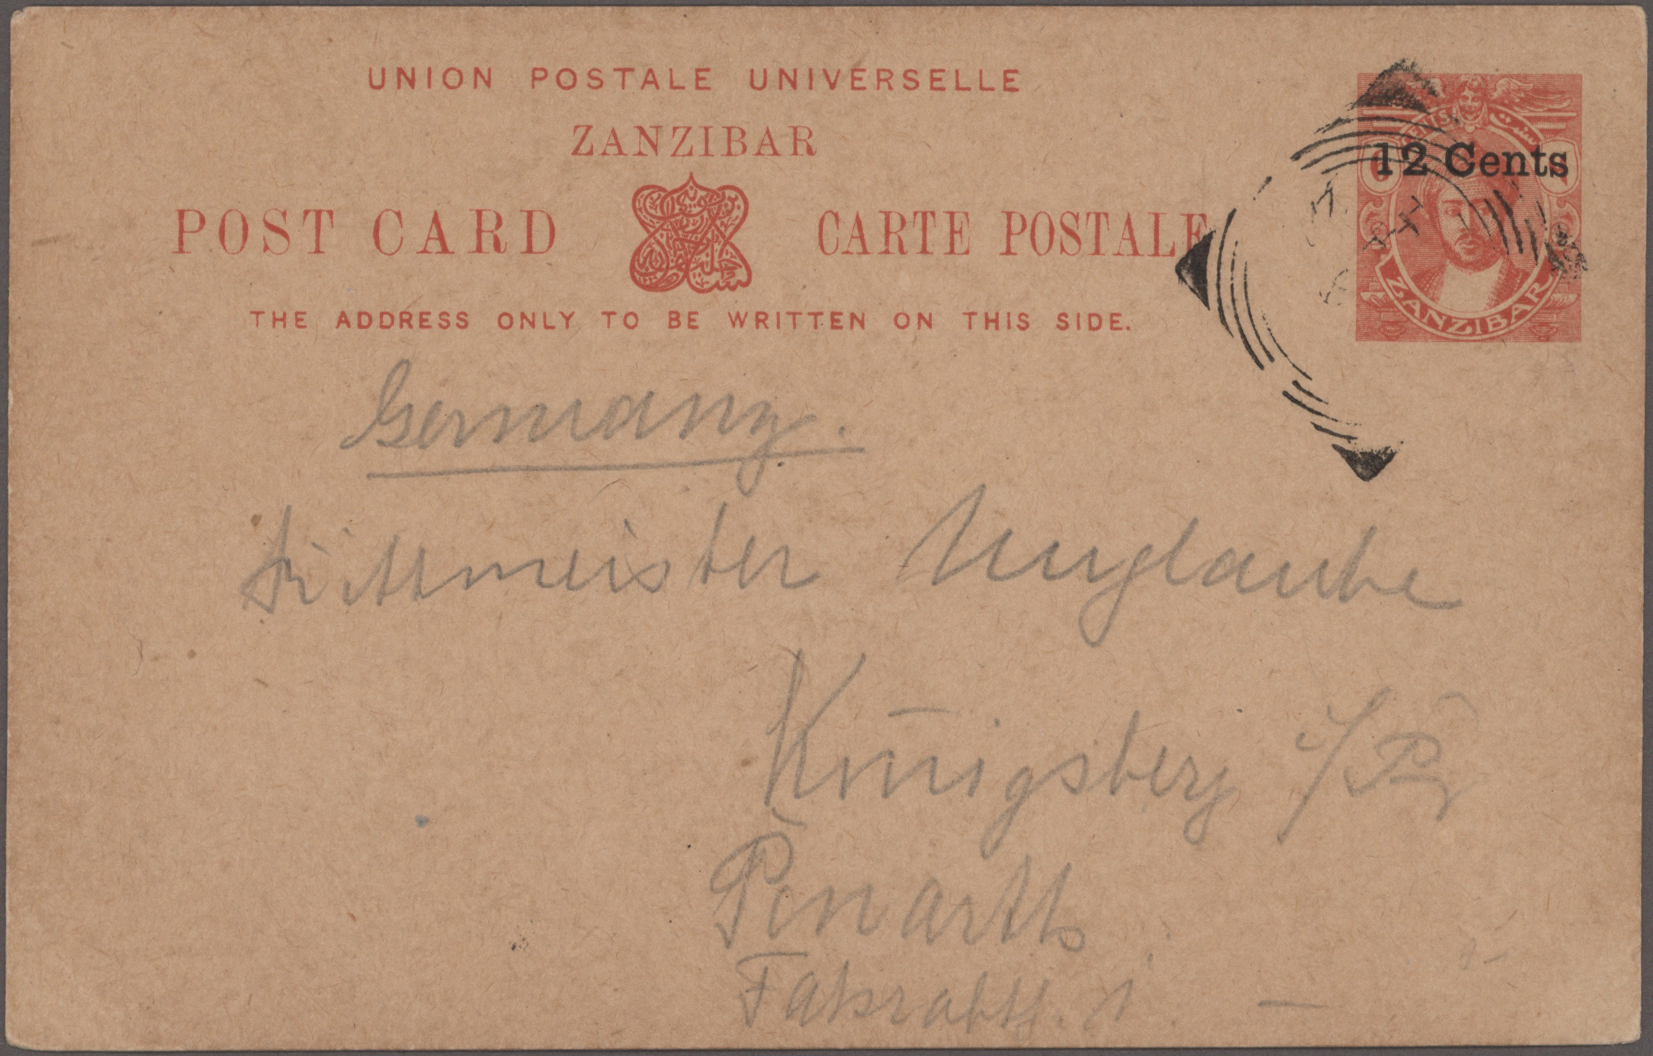 UNION POSTALE UNIVERSELLE
ZANZIBAR
POST CARD CARTE POSTALE
THE ADDRESS ONLY TO BE WRITTEN ON THIS SIDE.
12 Cents
ZANZIBAR
Germany.
Rittmeister Unglaube
Königsberg i/Pr